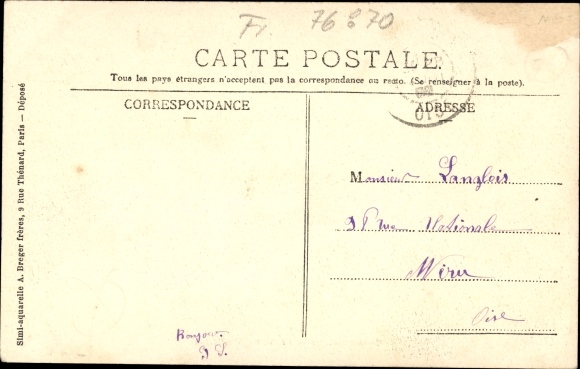 Fr 76870
CARTE POSTALE.
Tous les pays étrangers n'acceptent pas la correspondance au recto. (Se renseigner à la poste).
CORRESPONDANCE
ADRESSE
OISE
Monsieur Langlois
Rue Nationale
Méru
Oise
Bonjour
Simi-aquarelle A. Breger frères, 9 Rue Thénard, Paris — Déposé